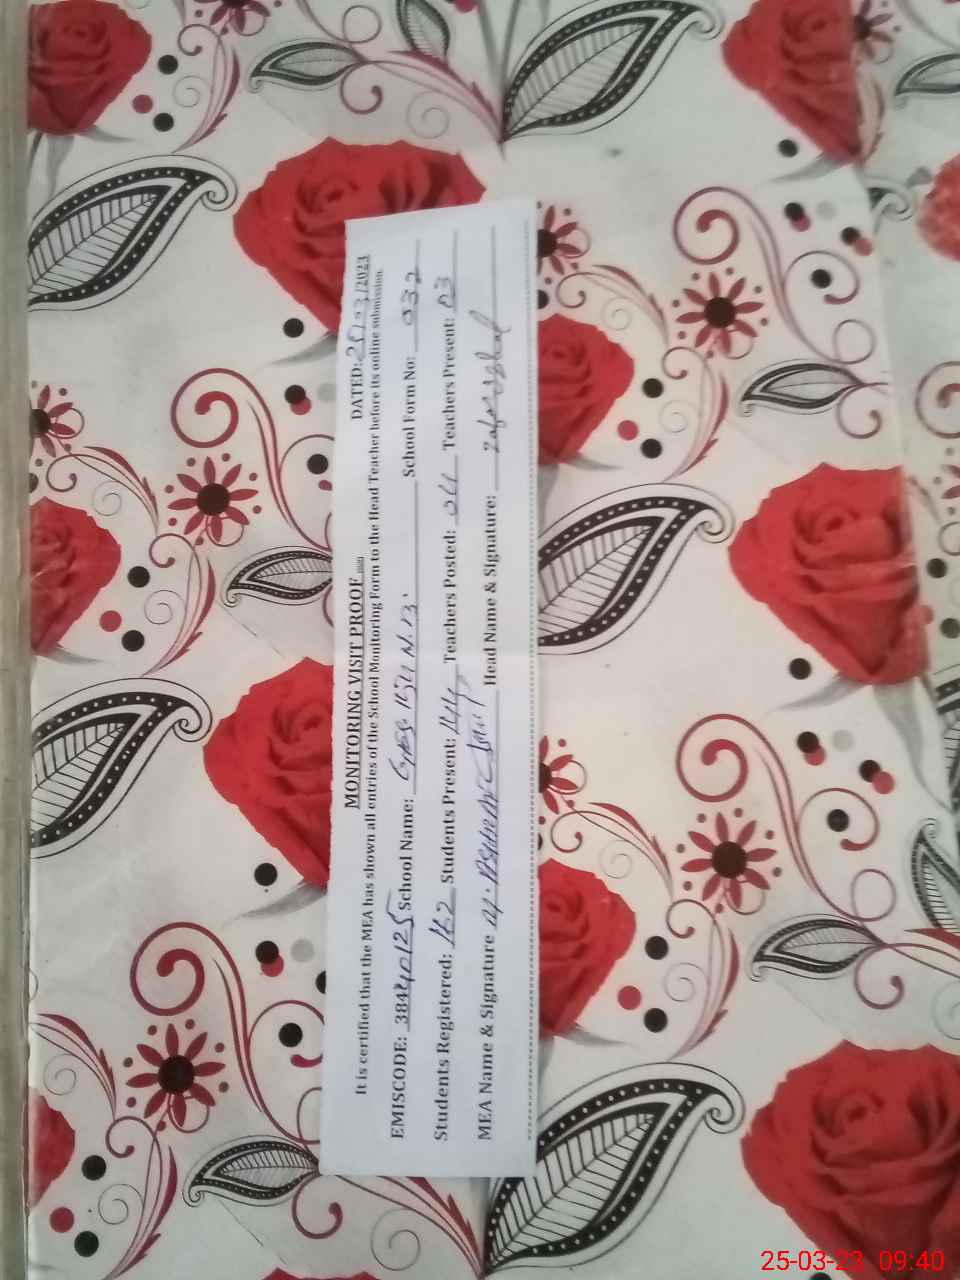 MONITORING VISIT PROOF
DATED: 25/03/2023
It is certified that the MEA has shown all entries of the School Monitoring Form to the Head Teacher before its online submission.
EMISCODE: 38440125 School Name: GPS School Form No: 032
Students Registered: 162 Students Present: 144 Teachers Posted: 04 Teachers Present: 03
MEA Name & Signature Head Name & Signature:
25-03-23 09:40